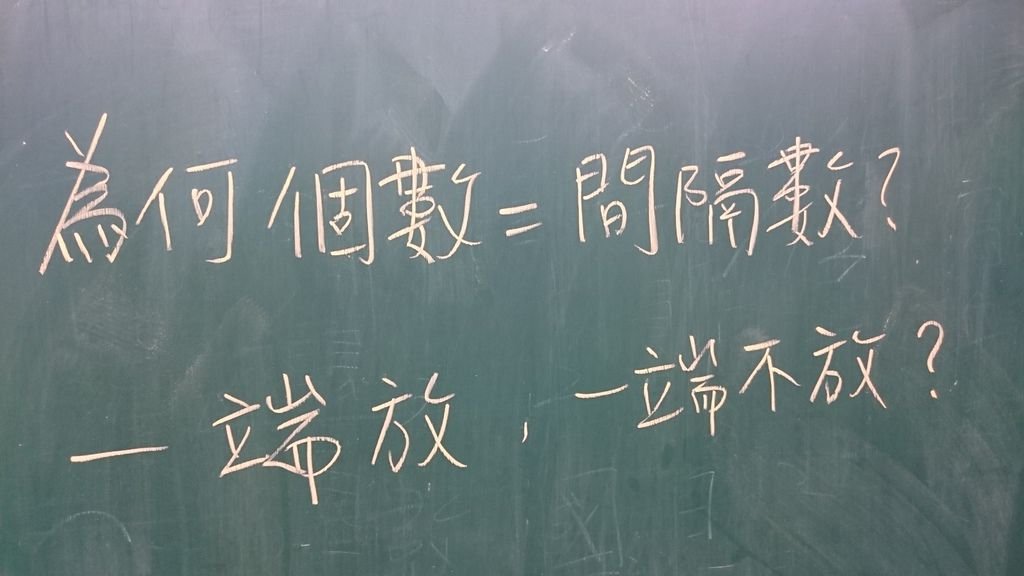 為何個數=間隔數?
一端放,一端不放?